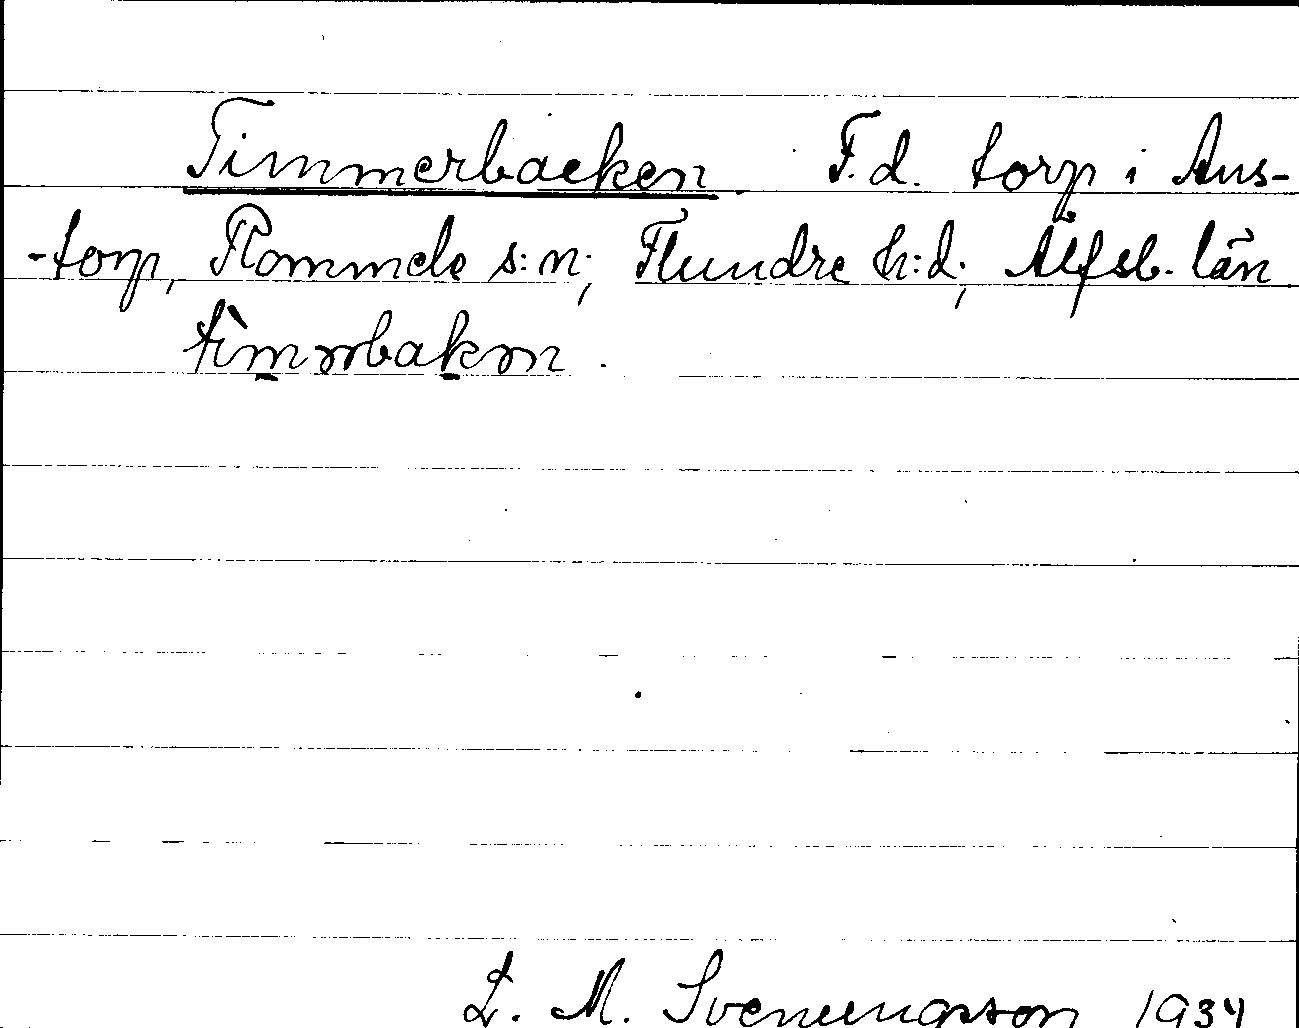 Timmerbacken. F.d. torp i Aus-
-torp, Rommele s:n; Flundre h:d; Älfsb. län
L. M. Svenungsson 1934